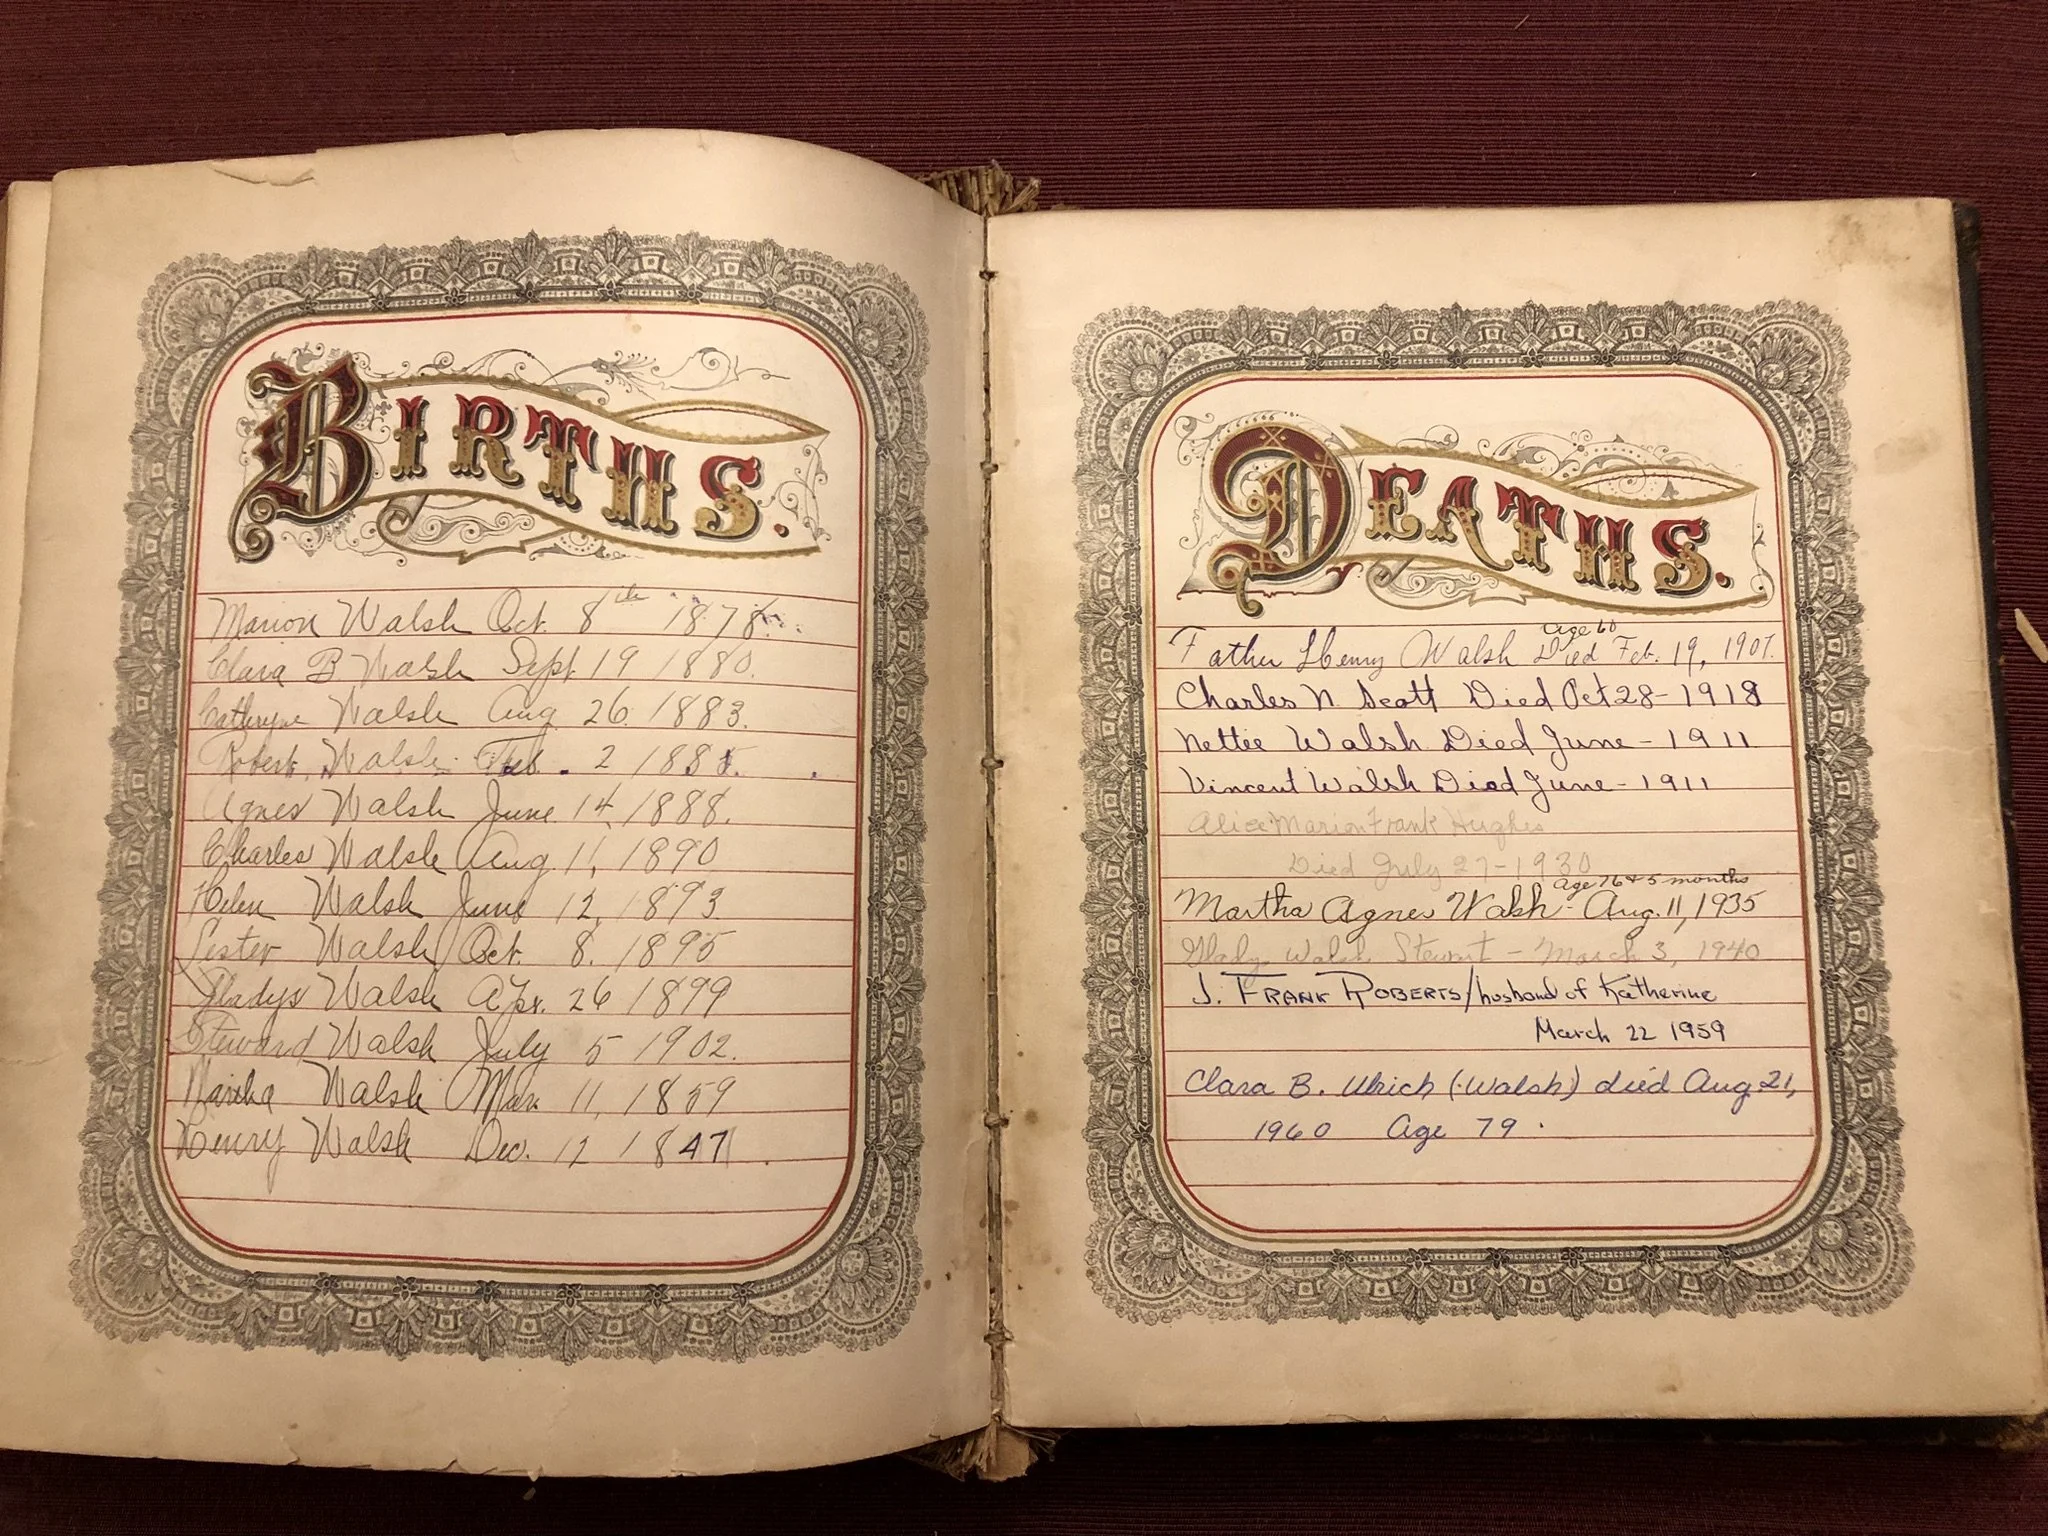 BIRTHS.
Marion Walsh Oct. 8th 1878
Clara B. Walsh Sept 19 1880.
Cathryne Walsh Aug 26. 1883.
Robert Walsh Feb. 2 1885.
Agnes Walsh June 14, 1888.
Charles Walsh Aug 11, 1890
Helen Walsh June 12, 1893.
Lester Walsh Oct. 8. 1895
Gladys Walsh Apr. 26 1899
Steward Walsh July 5 1902.
Martha Walsh Mar 11, 1859
Henry Walsh Dec. 12 1847
DEATHS.
Age 60
Father Henry Walsh Died Feb. 19, 1907.
Charles N. Scott Died Oct 28-1918
Nettie Walsh Died June-1911
Vincent Walsh Died June-1911
Alice Marion Frank Hughes
Died July 27-1930
Age 76 & 5 months
Martha Agnes Walsh - Aug. 11, 1935
Gladys Walsh Stewart - March 3, 1940
J. FRANK ROBERTS/husband of Katherine
March 22 1959
Clara B. Ulrich (Walsh) died Aug. 21,
1960 Age 79.